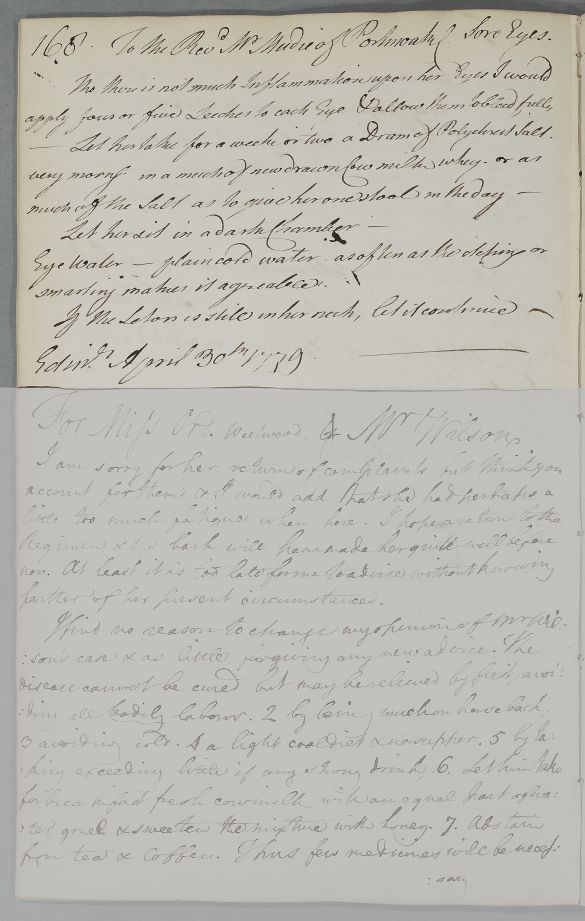 168. To the Revd Mr Mudie of Portmoak. Sore Eyes.
Tho there is not much Inflammation upon her Eyes I would
apply four or five Leeches to each Eye & allow them to bleed fully
— Let her take for a week or two a Dram of Polychrest Salt
every morng in a mutch of new drawn Cow milk whey. or as
much of the Salt as to give her one stool in the day —
Let her sit in a dark Chamber —
Eye Water — plain cold water as often as the or
smarting makes it agreeable.
If the Seton is still in her neck, let it continue —
Edinr. April 30th 1779.
For Miss Ord. Weetwood & Mr Wilson
I am sorry for her return of complaints but think you
account for them & I would add that she had perhaps a
little too much fatigue when here. I hope a return to the
Regimen & the bark will have made her quite well before
now. At least it is too late for me to advise without knowing
farther of her present circumstances.
I find no reason to change my opinion of Mr Wil-
:son's case & as little for giving any new advice. The
disease cannot be cured but may be relieved by first, avoi-
:ding all bodily labour. 2 by being much on horseback,
3 avoiding cold. 4 a light cool diet & no supper. 5 by ta-
:king exceeding little if any strong drink 6. Let him take
for breakfast fresh cow milk with an equal part of wa-
:ter gruel & sweeten the mixture with honey. 7. Abstain
from tea & Coffee. Thus few medicines will be neces-
:sary